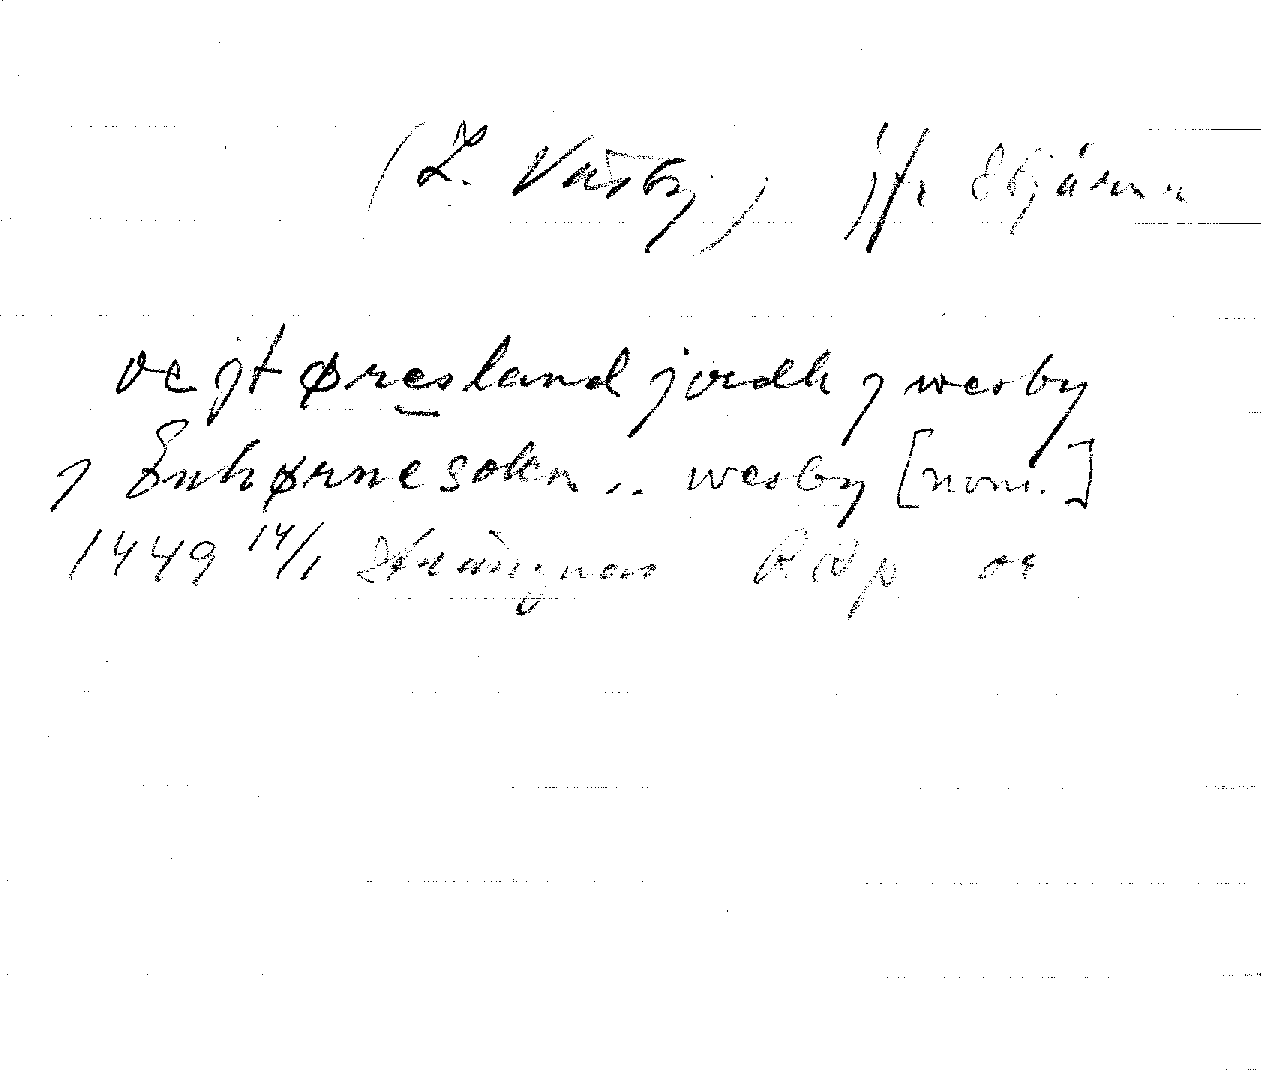 (L. Väsby) jfr Ekjärnn
oc jt øresland jordh j wesby
j Enhørnesokn .. wesby [nom.]
1449 14/1 Strängnäs RAp or